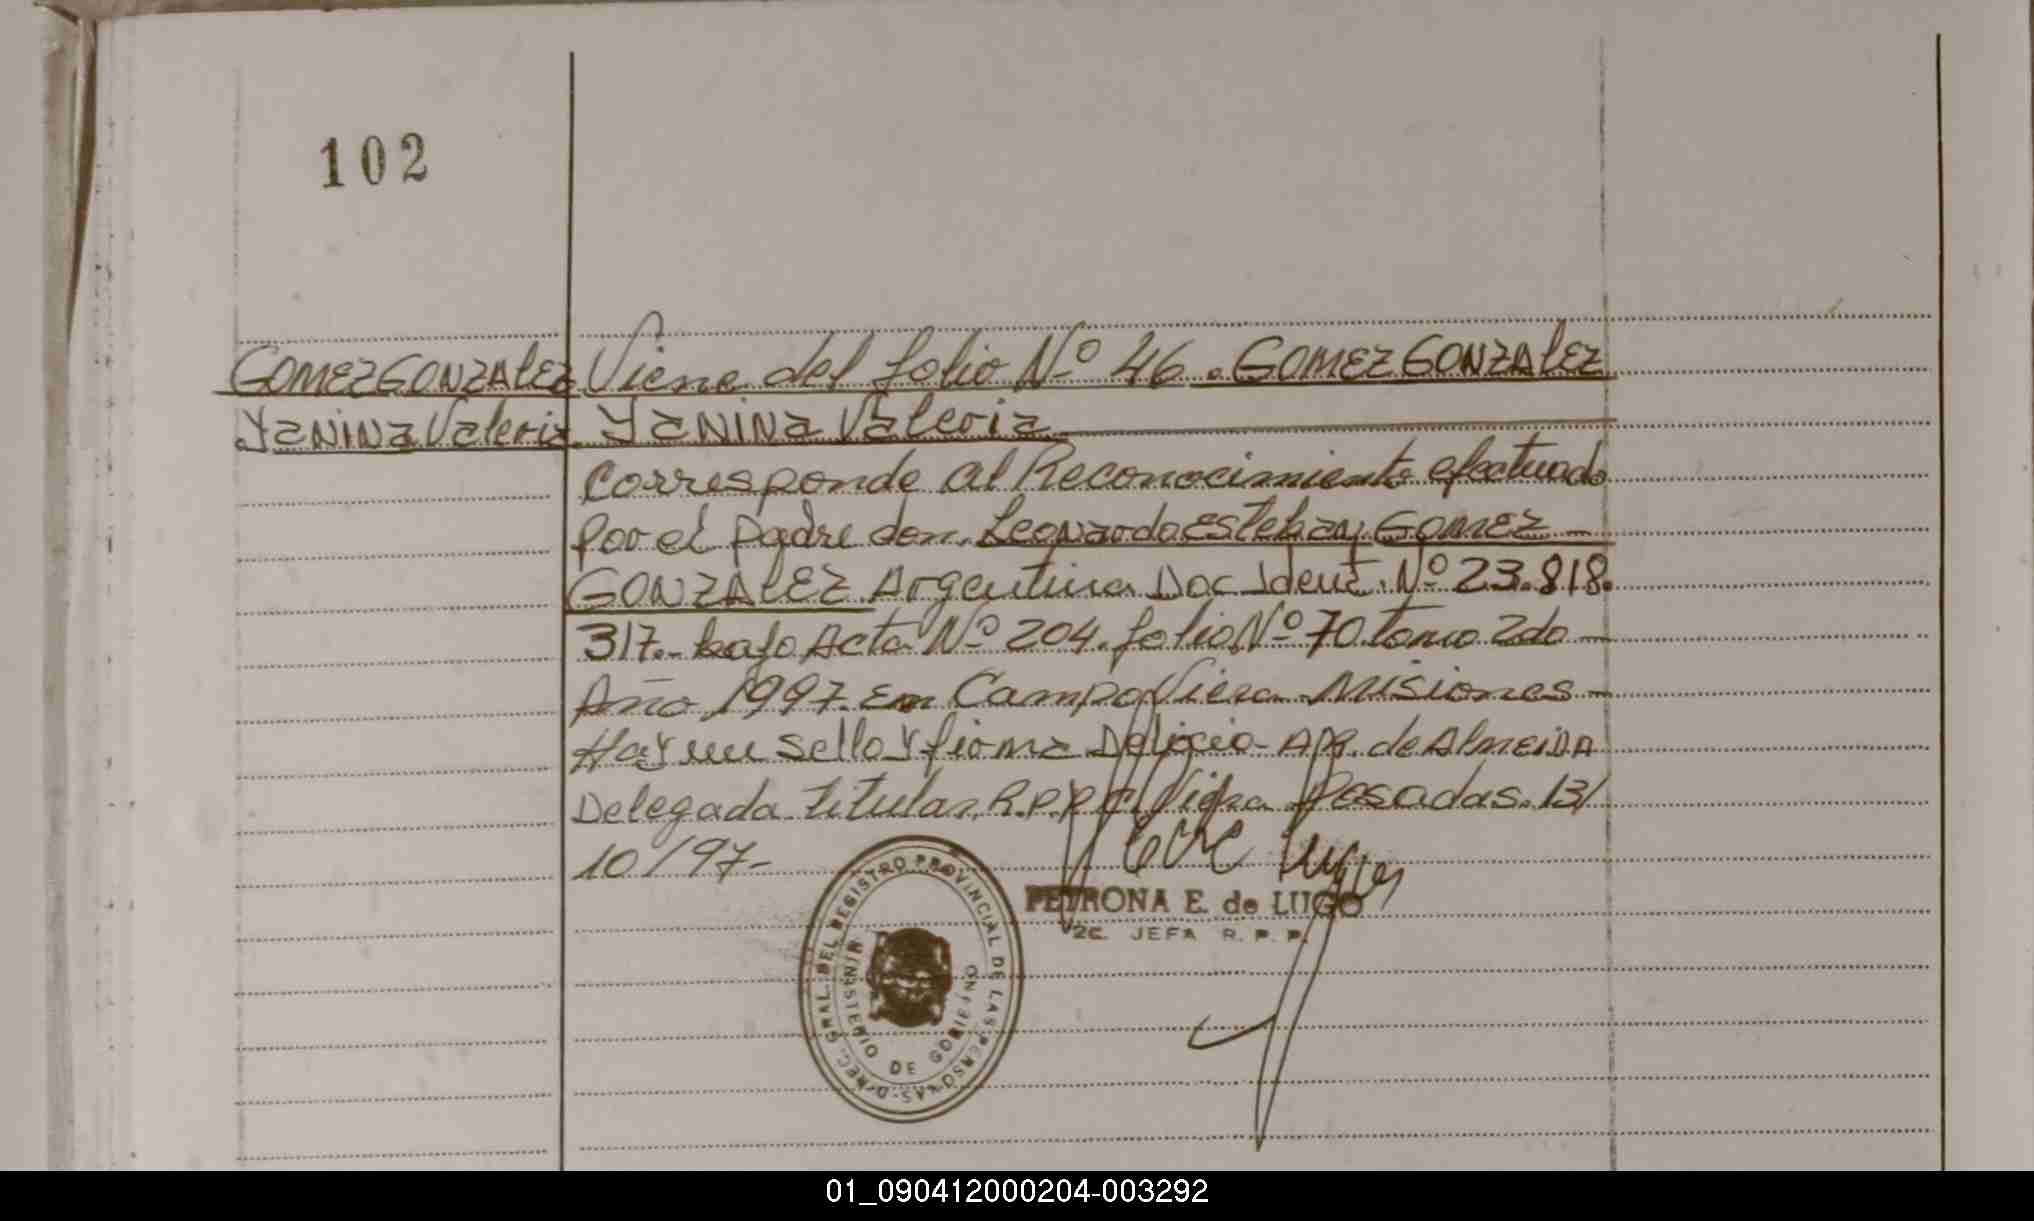 102
GOMEZ GONZALEZ
Yanina Valeria
Viene del folio Nº 46. GOMEZ GONZALEZ
Yanina Valeria
Corresponde al Reconocimiento efectuado
por el padre don. Leonardo Esteban GOMEZ
GONZALEZ Argentina Doc Ident. Nº 23.818.
317.- bajo Acta Nº 204. folio Nº 70 tomo 2do
Año 1997. En Campo Viera Misiones
Hay un sello y firma Delicio A de Almeida
Delegada titular. R.P.P. C. Viera Posadas. 13/
10/97-
DIREC. GRAL. DEL REGISTRO PROVINCIAL DE LAS PERSONAS
MINISTERIO DE GOBIERNO
PETRONA E. de LUGO
2ª JEFA R. P. P.
01_090412000204-003292